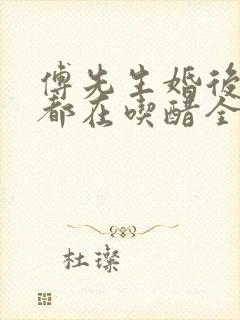 傅先生婚後
都在喫醋全
杜璨